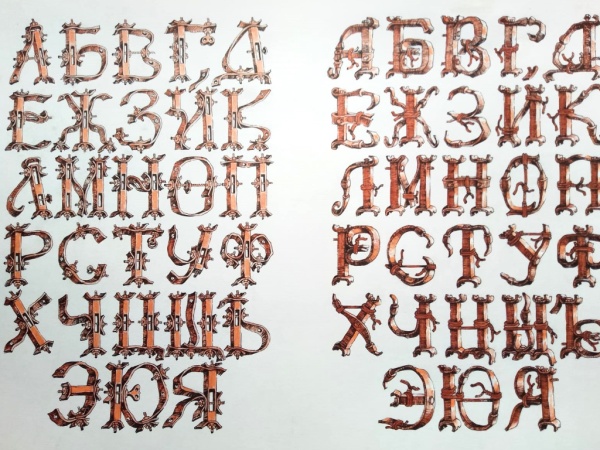 АБВГД
ЕЖЗЙК
ЛМНОП
РСТУФ
ХЧШЩЪ
ЭЮЯ
АБВГД
ЕЖЗЙК
ЛМНОП
РСТУФ
ХЧШЩЪ
ЭЮЯ